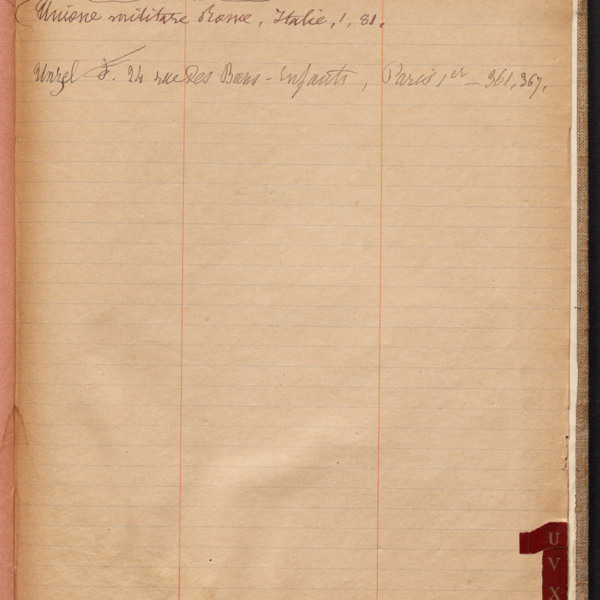 Unione militare Rome, Italie, 1, 81.
Unzel F. 24 rue des Bons-Enfants, Paris 1er – 361, 367,
U
V
X